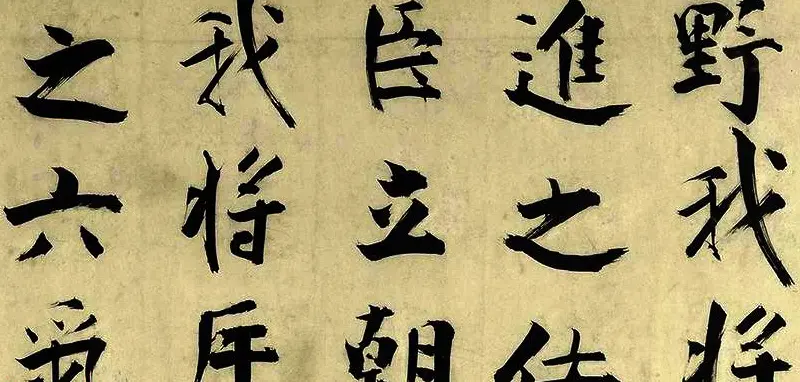 野我将
進之佞
臣立朝
我将斥
之六